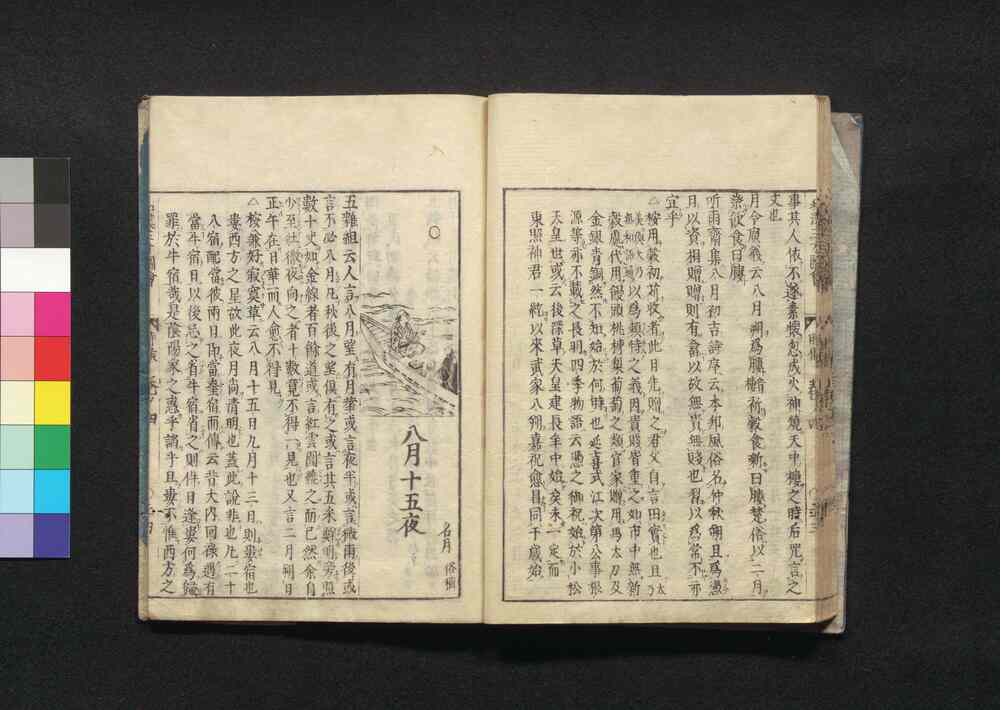 事其人依不遂素懷怨成火神燒天中檀之時后咒言之
丈也
月令廣義云八月朔爲膢膢祈穀食新曰膢楚俗以二月
祭飲食曰膢
听雨齋集八月初吉詩序云本邦風俗名仲秋朔且爲憑
且以資相贈贈則有酬以故無貴無賤也私以爲常不亦
宜乎
△按用最初苅收者此日先贈之君父自言田實也且太
以爲頼恃之義因貴賤皆重之如市中無新
穀處代用饅頭桃榑梨葡萄之類官家贈用爲太刀及
金銀青銅然不知始於何時也延喜式江次第公事根
源等亦不載之長明四季物語云憑之御祝始於小松
天皇也或云後深草天皇建長年中始矣未一定而
東照神君一統以來武家八朔嘉祝愈昌同于歳始
八月十五夜
名月
俗稱
五雜組云人言八月望有月華或言夜半或言微雨後或
言不必八月凡秋後之望俱有之或言其五采鮮明旁照
數十丈如金線者百餘道或言紅雲圍繞之而已然余自
少至壯徹夜向之者十數竟不得一見也又言二月朔日
正午在日華而人愈不得見
△按兼好寂寞草云八月十五日九月十三日則婁宿也
婁西方之星故此夜月尚清明也蓋此說非也凡二十
八宿配當彼兩日即當婁宿而傳云昔大内回祿遇有
當牛宿日以後忌之首牛宿省之則件日逢婁何爲歸
罪於牛宿哉是陰陽家之惑乎諂乎且婁不惟西方之